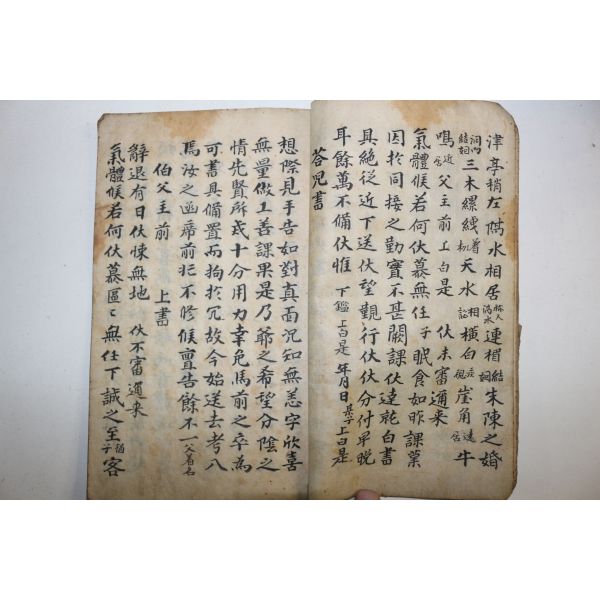 津亭稍左隔水相居隣人隔水連楣結姻朱陳之婚
三木縲絏着枷天水相訟橫白疾視崖角遠居牛
鳴近居父主前上白是 伏未審邇來
氣體候若何伏慕無任子眠食如昨課業
因於同接之勤實不甚闕課伏達耽白書
具絶從近下送伏望觀行伏伏分付早晩
耳餘萬不備伏惟 下鑑 上白是 年月日 長子上白是
答兄書
想際見手告如對真面況知無恙字欣喜
無量做工善課果是乃爺之希望分陰之
情先賢所戒十分用力幸免馬前之卒為
可書具備置而拘於冗故今始送去考八
馬汝之函席前非不修候亶告餘不一父着名
伯父主前 上書
辭退有日伏悚無地 伏不審邇來
氣體候若何伏慕區〻無任下誠之至子侄客